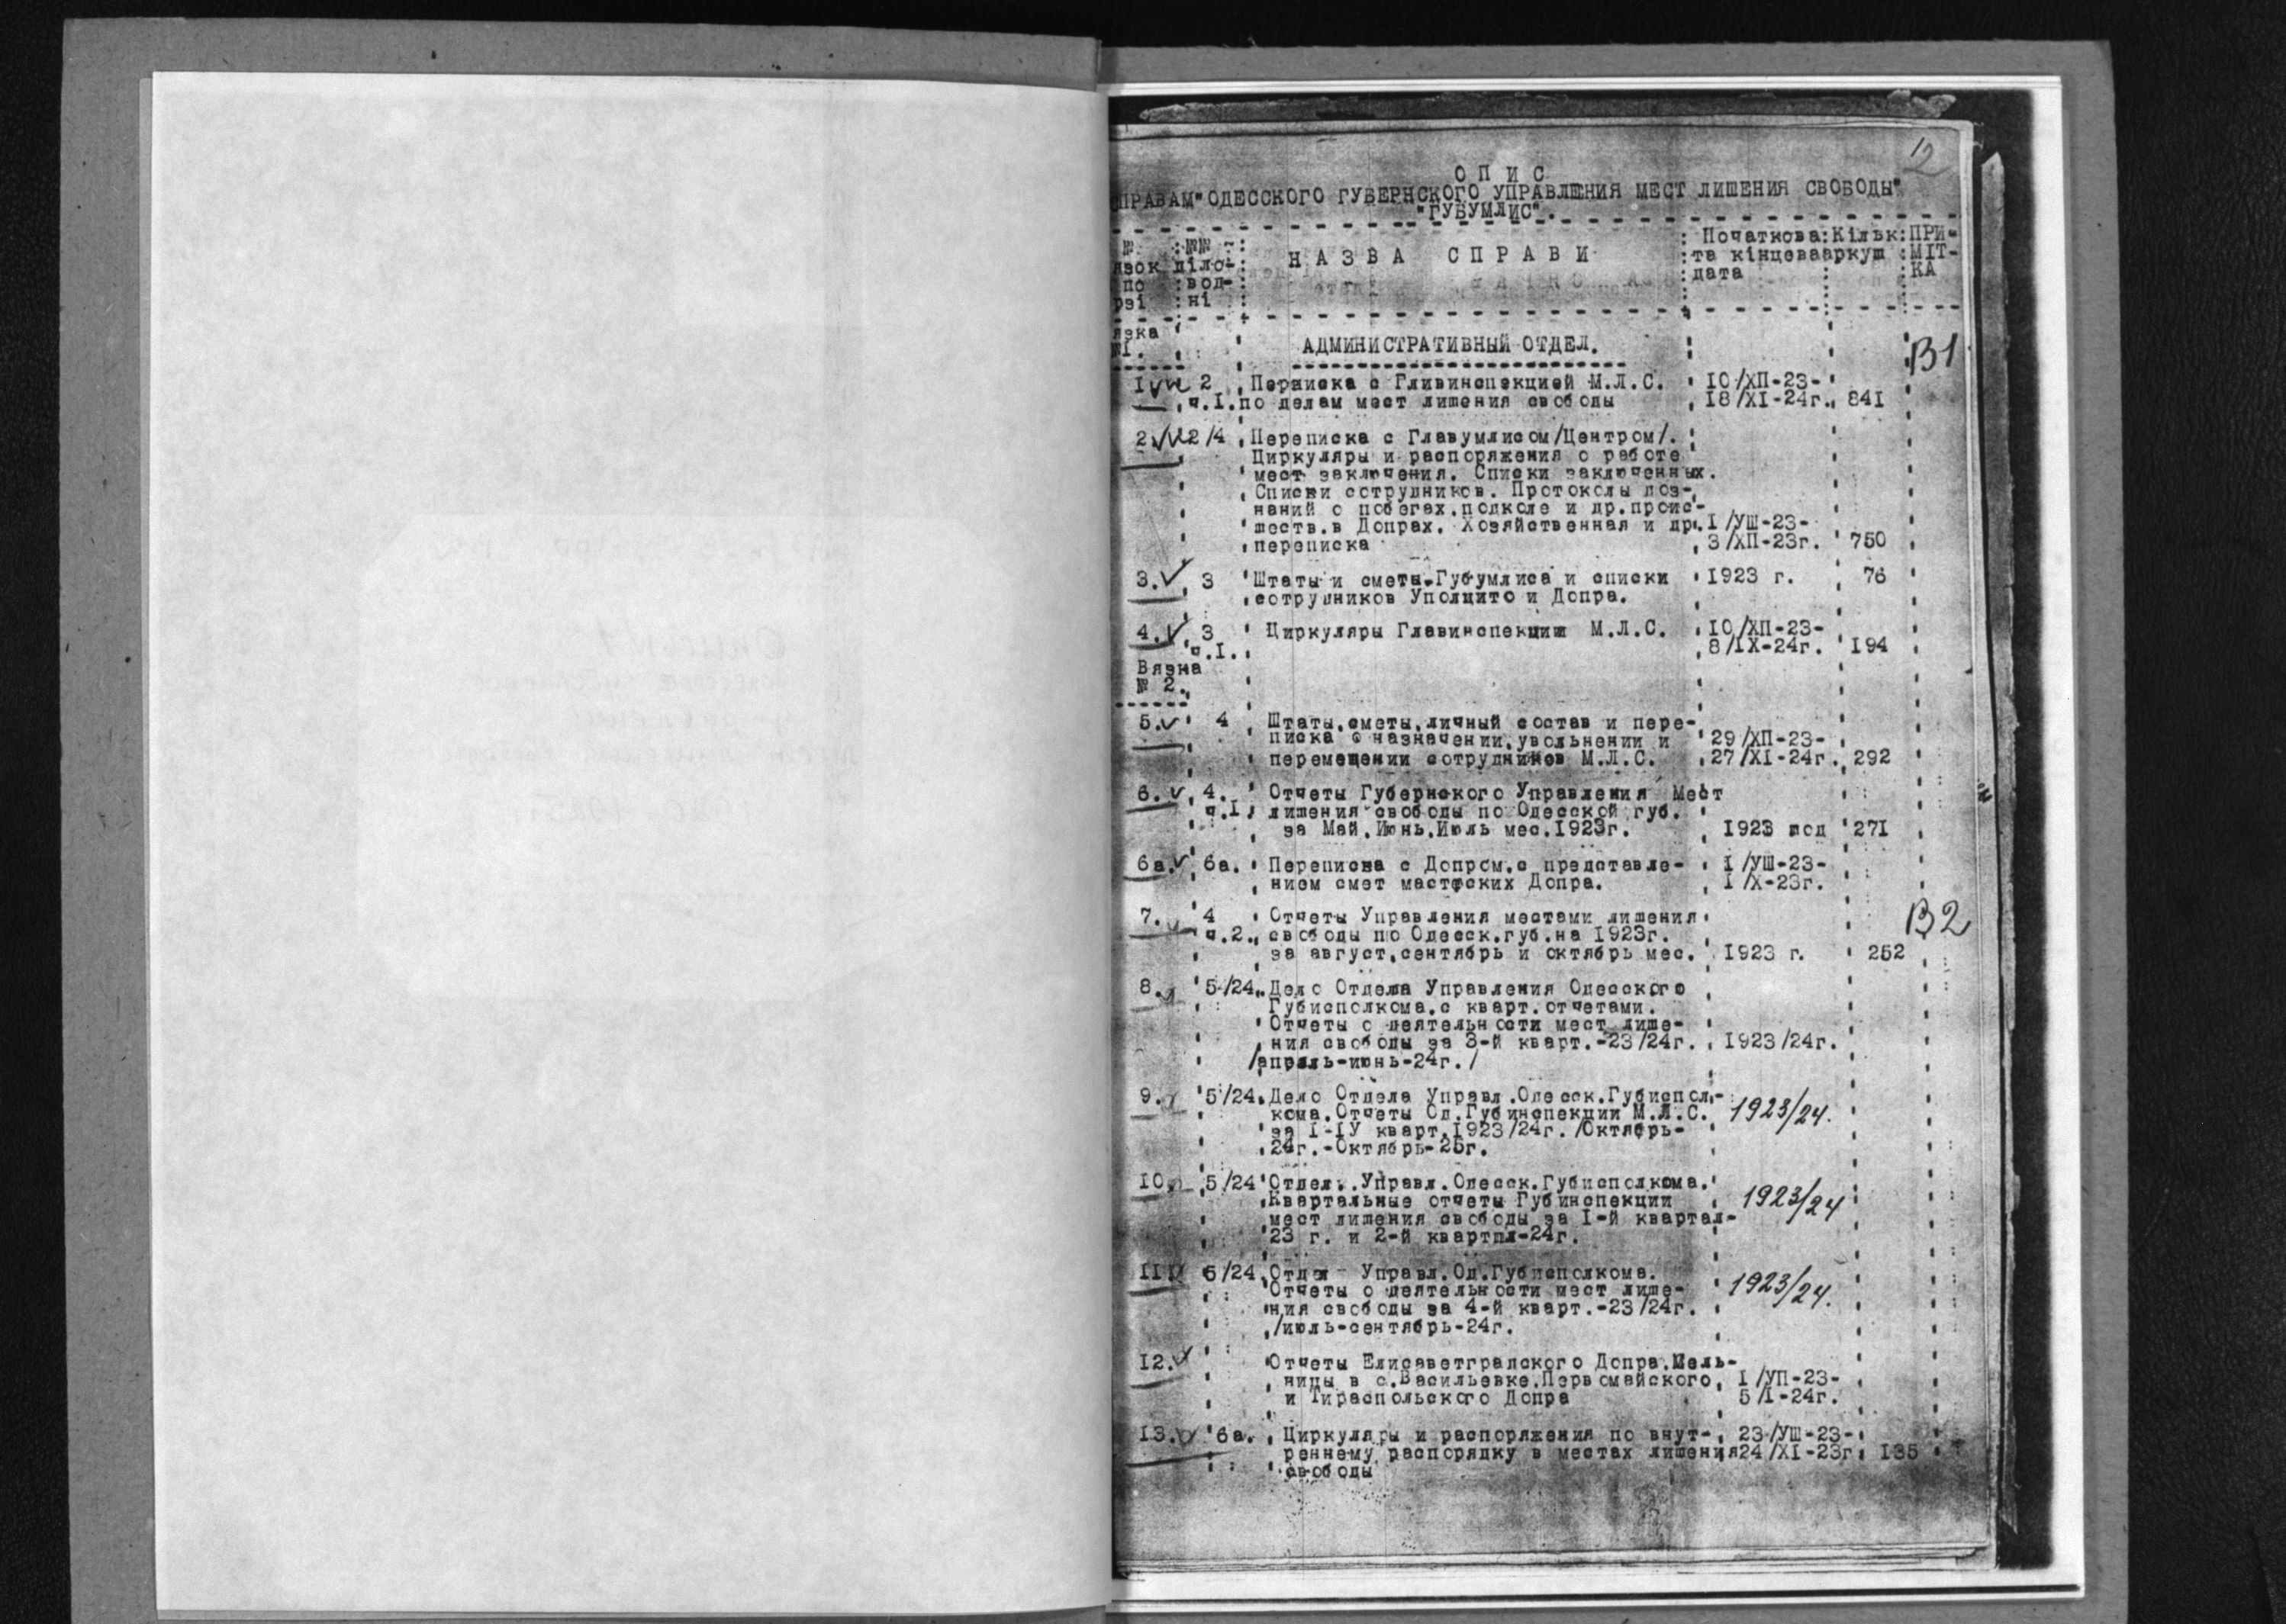 12
О П И С
СПРАВАМ "ОДЕССКОГО ГУБЕРНСКОГО УПРАВЛЕНИЯ МЕСТ ЛИШЕНИЯ СВОБОДЫ"
"ГУБУМЛИС".
№ : №№ : НАЗВА СПРАВИ : Початкова : Кільк : ПРИ-
язок діло- та кінцева аркуш МІТ-
по вод- дата КА
рзі ні
язка
№1. АДМИНИСТРАТИВНЫЙ ОТДЕЛ. В1
1 2 Переписка с Гливинспекцией М.Л.С. 10/ХП-23-
ч.1. по делам мест лишения свободы 18/XI-24г. 841
2. 2/4 Переписка с Главумлисом/Центром/.
Циркуляры и распоряжения о работе
мест заключения. Списки заключенных.
Списки сотрудников. Протоколы доз-
наний о побегах,подкопе и др.проис-
шеств.в Допрах. Хозяйственная и др. 1/УШ-23-
переписка 3/ХП-23г. 750
3. 3 Штаты и сметы Губумлиса и списки 1923 г. 76
сотрудников Уполцито и Допра.
4. 3 Циркуляры Главинспекции М.Л.С. 10/ХП-23-
ч.1. 8/IX-24г. 194
Вязка
№ 2.
5. 4 Штаты,сметы,личный состав и пере-
писка о назначении,увольнении и 29/ХП-23-
перемещении сотрудников М.Л.С. 27/XI-24г. 292
6. 4. Отчеты Губернского Управления Мест
ч.1 лишения свободы по Одесской губ.
за Май,Июнь,Июль мес.1923г. 1923 год 271
6а. 6а. Переписка с Допром,с представле- 1/УШ-23-
нием смет мастерских Допра. 1/X-23г.
7. 4 Отчеты Управления местами лишения В2
ч.2. свободы по Одесск.губ.на 1923г.
за август,сентябрь и октябрь мес. 1923 г. 252
8. 5/24. Дело Отдела Управления Одесского
Губисполкома,с кварт.отчетами.
Отчеты о деятельности мест лише-
ния свободы за 3-й кварт.-23/24г. 1923/24г.
/апрель-июнь-24г./
9. 5/24. Дело Отдела Управл.Одесск.Губиспол-
кома.Отчеты Од.Губинспекции М.Л.С. 1923/24.
за I-IУ кварт.1923/24г./Октябрь-
24г.-Октябрь-25г.
10. 5/24 Отдел.Управл.Одесск.Губисполкома.
Квартальные отчеты Губинспекции 1923/24
мест лишения свободы за I-й квартал-
23 г. и 2-й квартал-24г.
11 5/24 Отдел Управл.Од.Губисполкома.
Отчеты о деятельности мест лише- 1923/24.
ния свободы за 4-й кварт.-23/24г.
/июль-сентябрь-24г.
12. Отчеты Елисаветградского Допра.Мель-
ницы в с.Васильевке,Первомайского, 1/УП-23-
и Тираспольского Допра 5/I-24г.
13. 6а. Циркуляры и распоряжения по внут- 23/УШ-23-
реннему распорядку в местах лишения 24/XI-23г. 135
свободы